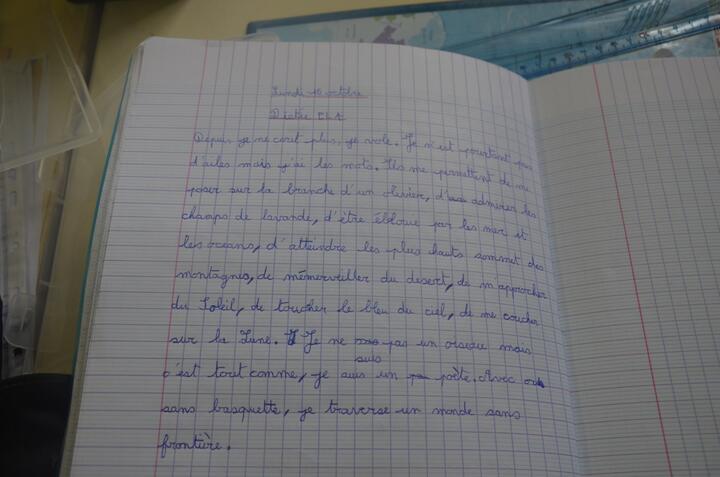 Lundi 10 octobre
Dictée CLA
Depuis je ne court plus, je vole. Je n'est pourtant pas
d'ailes mais j'ai les mots. Ils me permettent de me
poser sur la branche d'un olivier, d'admirer les
champs de lavande, d'être éblouie par les mer et
les océans, d'atteindre les plus hauts sommet des
montagnes, de mémerveiller du desert, de m'approcher
du Soleil, de toucher le bleu du ciel, de me coucher
sur la Lune. Je ne suis pas un oiseau mais
c'est tout comme, je suis un poète. Avec ou
sans basquette, je traverse un monde sans
frontière.